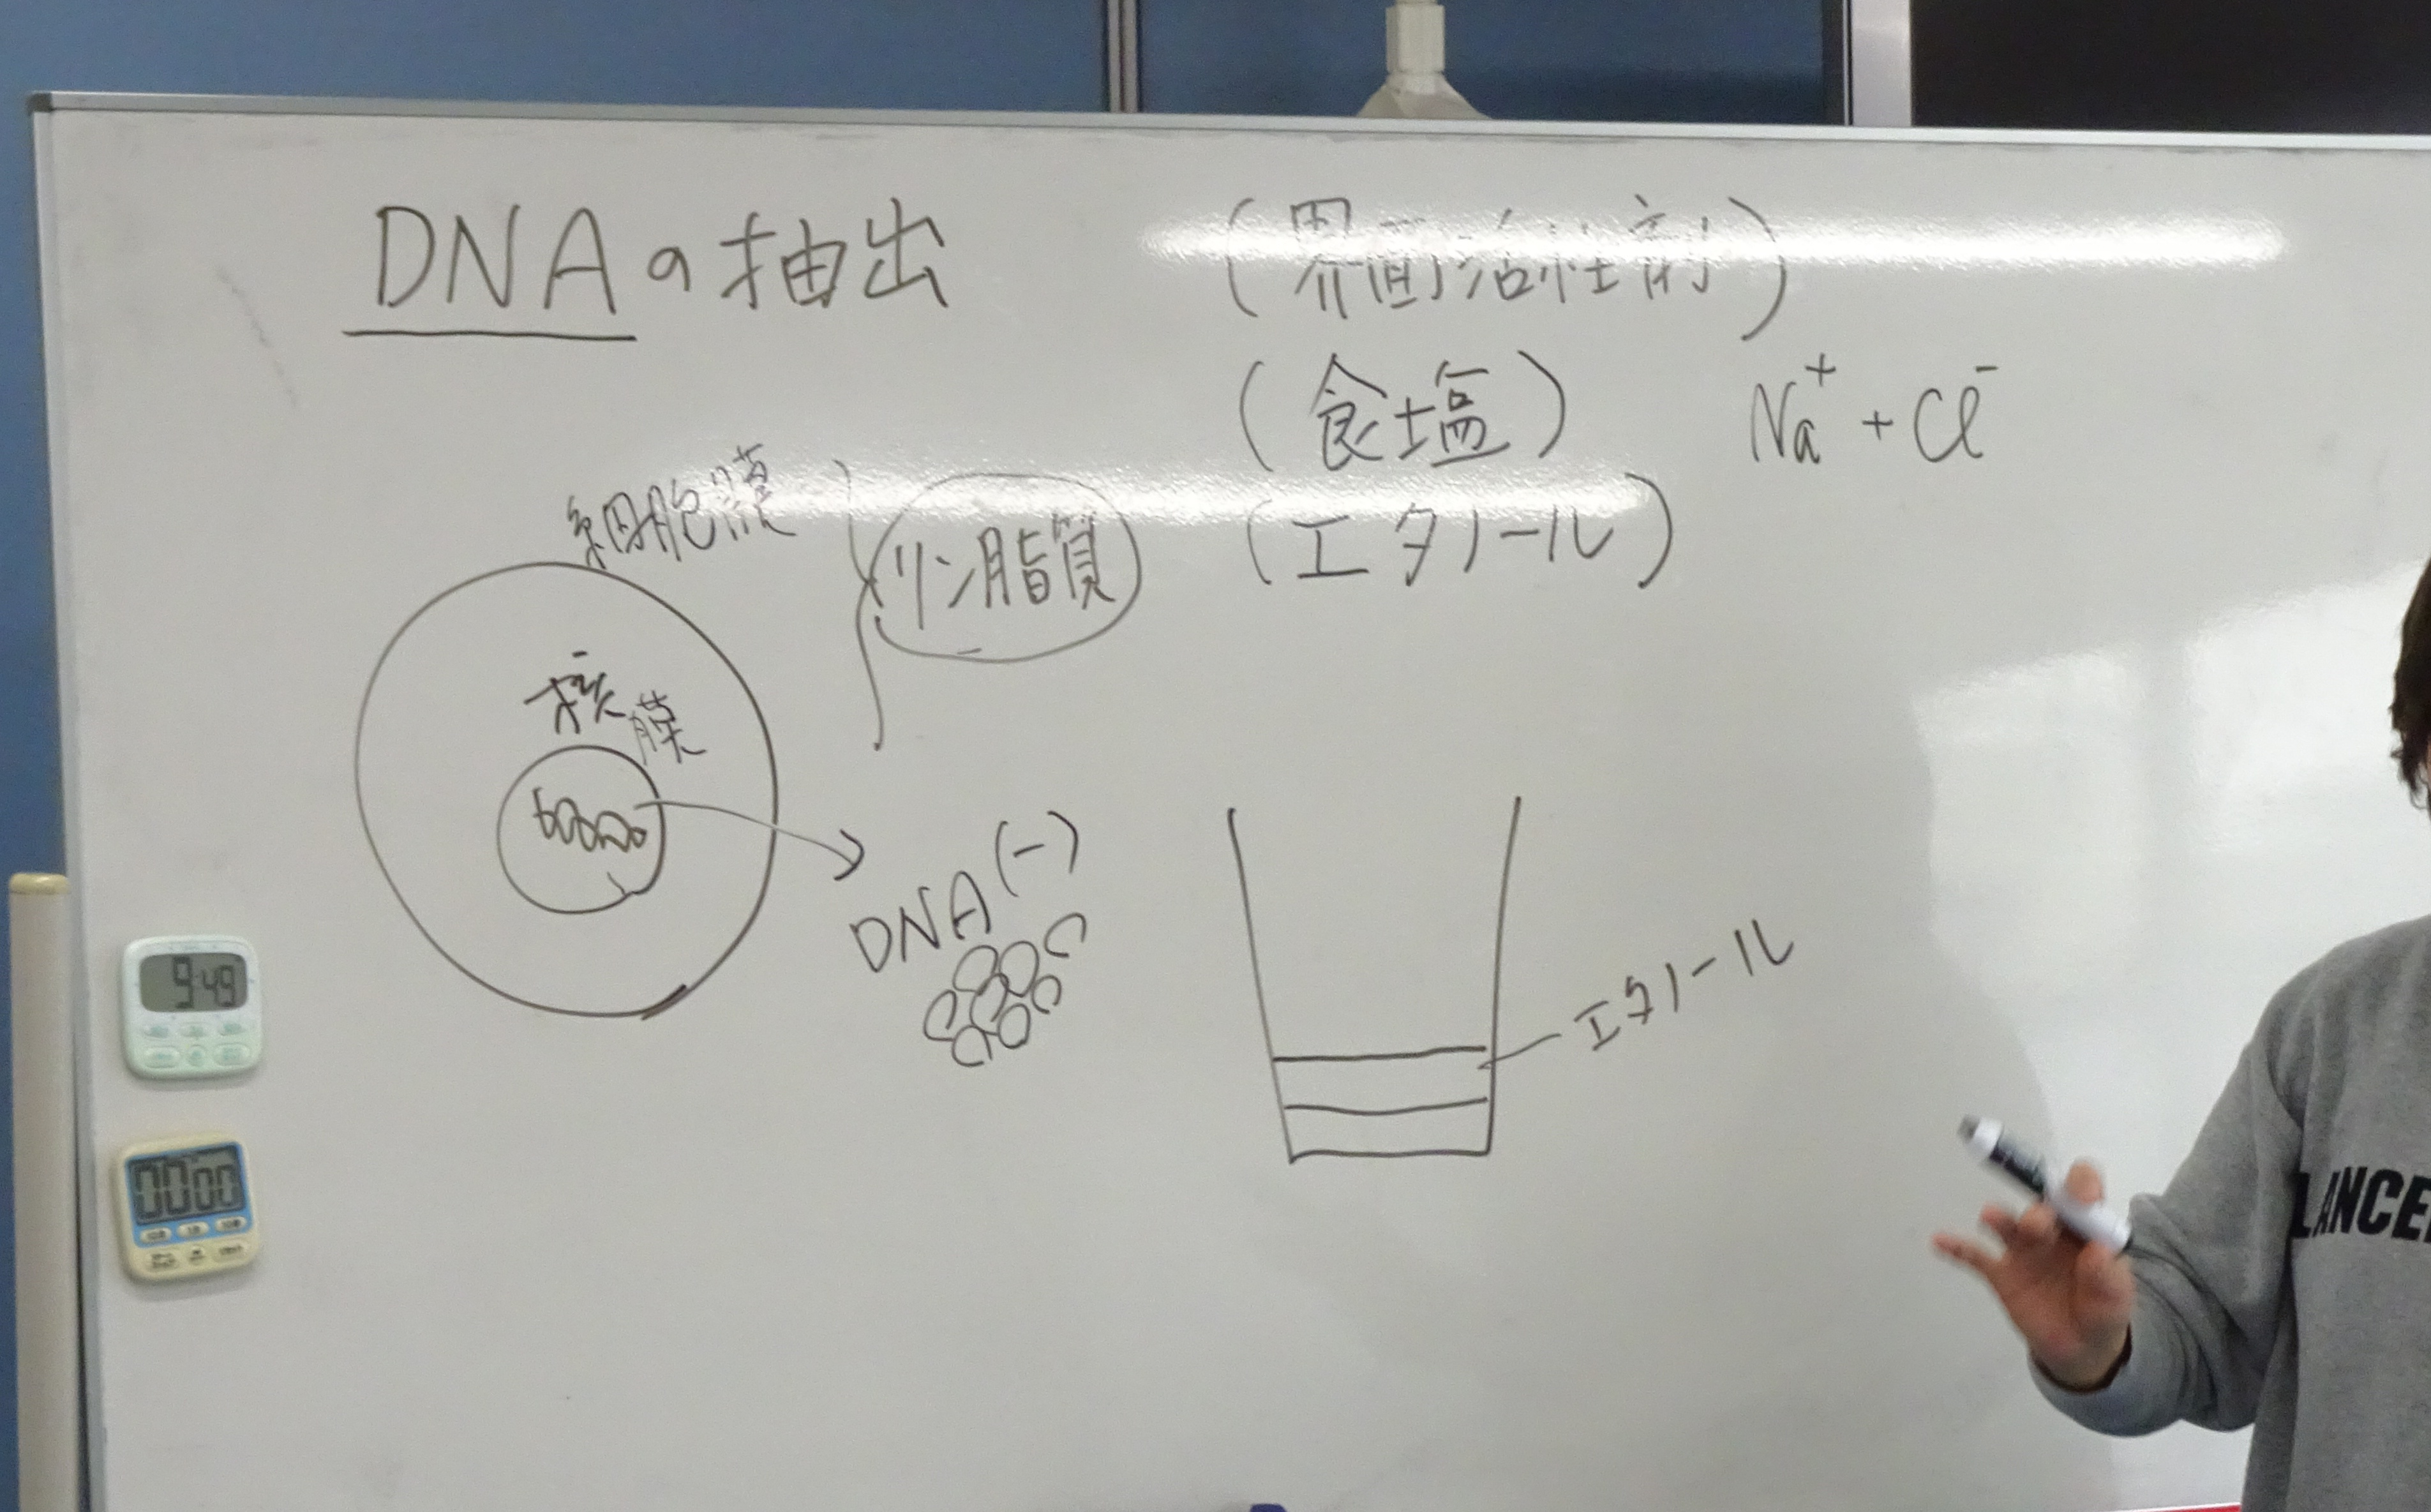 DNAの抽出
(界面活性剤)
(食塩) Na⁺ + Cl⁻
(エタノール)
細胞膜
リン脂質
核膜
DNA(-)
エタノール
9:49
00 00
LANCE